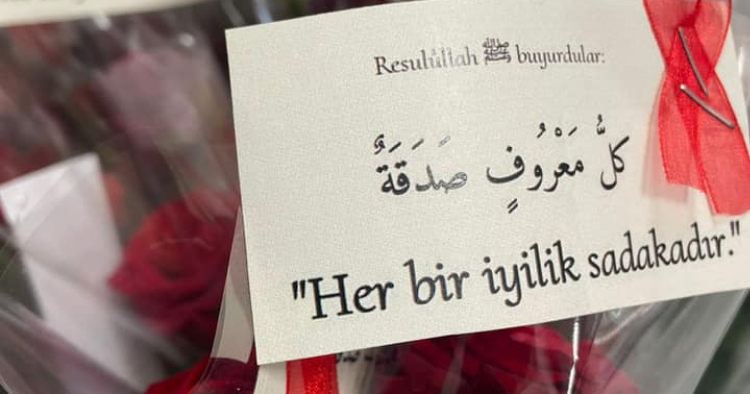 Resulullah ﷺ buyurdular:
كُلُّ مَعْرُوفٍ صَدَقَةٌ
"Her bir iyilik sadakadır."